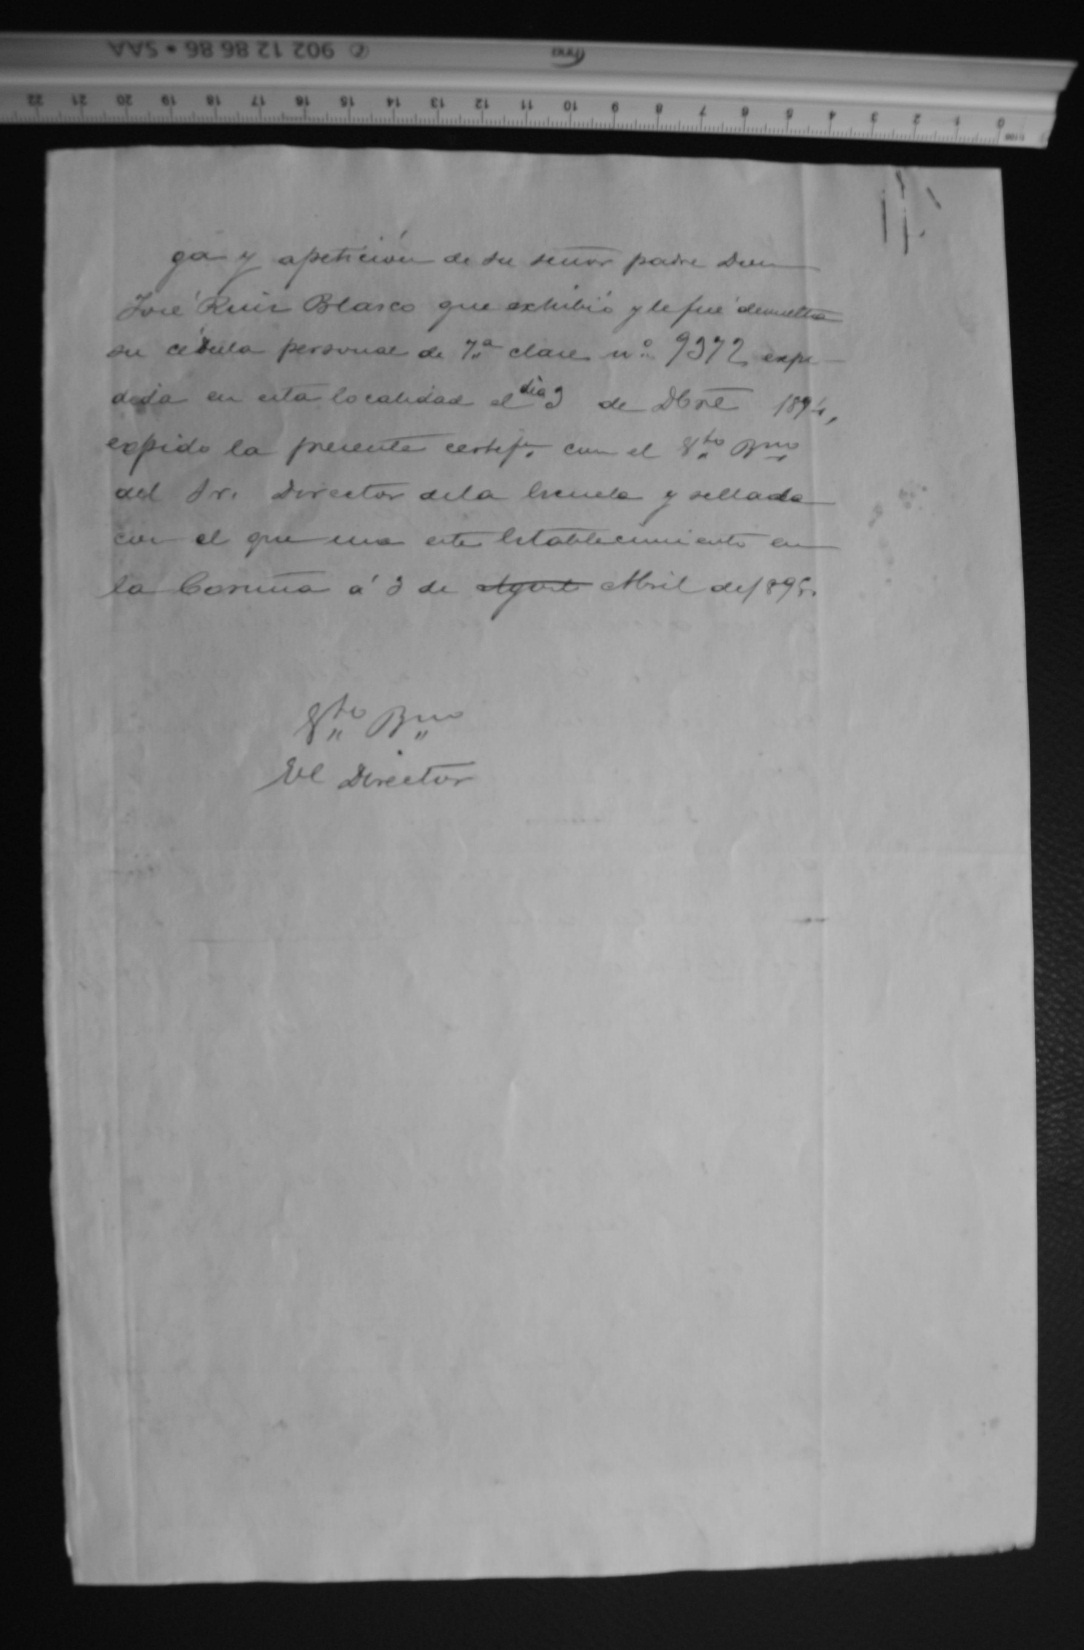 © 902 12 86 86 • SAA
22 21 20 19 18 17 16 15 14 13 12 11 10 9 8 7 6 5 4 3 2 1 0
ga y apetición de su señor padre Don
José Ruiz Blasco que exhibió y le fué devuelta
su cédula personal de 7.ª clase n.º 9372 expe-
dida en esta localidad el día 3 de Dbre 1894,
expido la presente certif.n con el Vto Bno
del Sr. Director dela Escuela y sellada
con el que usa este Establecimiento en
la Coruña a' 3 de Agost Abril de 1895.
Vto Bno
El Director